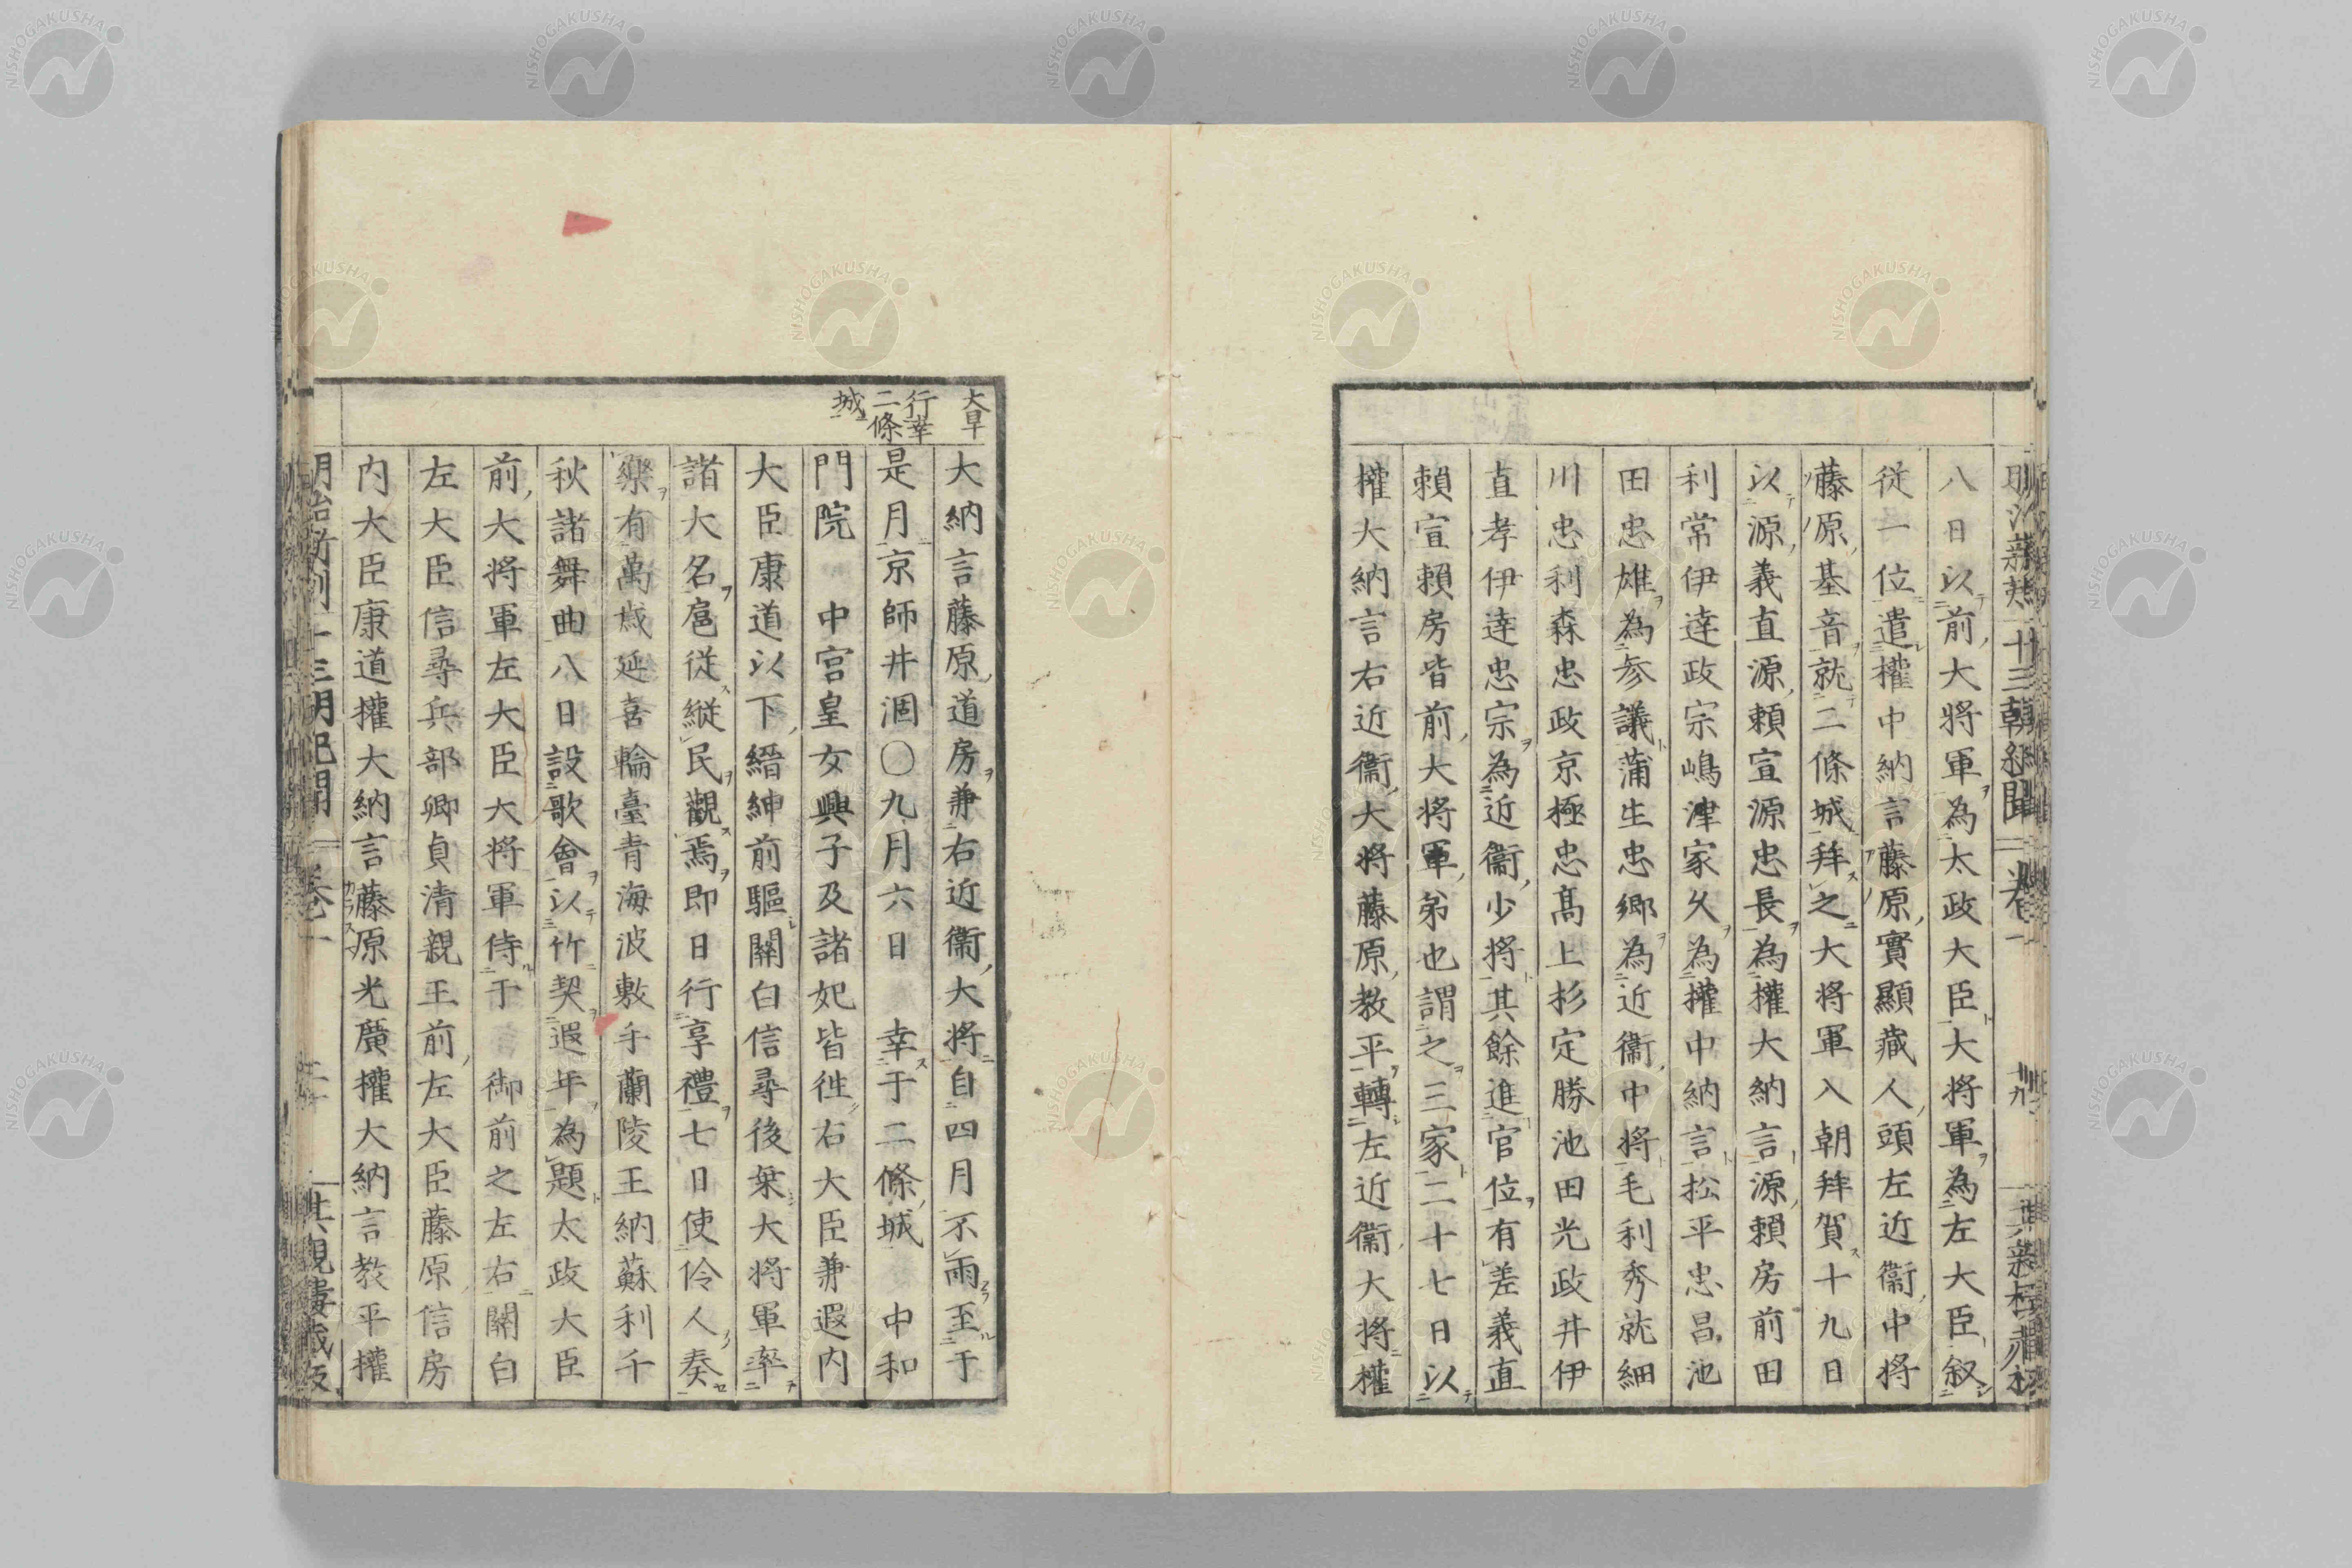 八日以前大将軍為太政大臣大将軍為左大臣叙
従一位遣權中納言藤原實顯藏人頭左近衞中将
藤原基音就二條城拜之大将軍入朝拜賀十九日
以源義直源頼宣源忠長為權大納言源頼房前田
利常伊達政宗嶋津家久為權中納言松平忠昌池
田忠雄為参議蒲生忠郷為近衞中将毛利秀就細
川忠利森忠政京極忠髙上杉定勝池田光政井伊
直孝伊達忠宗為近衞少将其餘進官位有差義直
頼宣頼房皆前大将軍弟也謂之三家二十七日以
權大納言右近衞大将藤原教平轉左近衞大将權
大旱
行幸
二條
城
大納言藤原道房兼右近衞大将自四月不雨至于
是月京師井涸〇九月六日 幸于二條城 中和
門院 中宮皇女興子及諸妃皆徃右大臣兼遐内
大臣康道以下縉紳前驅關白信尋後椉大将軍率
諸大名扈從縦民觀焉即日行享禮七日使伶人奏
樂有萬歳延喜輪臺青海波敷手蘭陵王納蘇利千
秋諸舞曲八日設歌會以竹契遐年為題太政大臣
前大将軍左大臣大将軍侍于 御前之左右關白
左大臣信尋兵部卿貞清親王前左大臣藤原信房
内大臣康道權大納言藤原光廣權大納言教平權